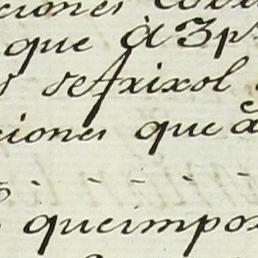 ciones
que à 3 p
s de frixol
ciones que à
queimpor